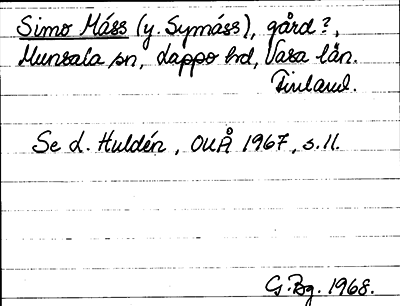 Simo Máss (y. Symáss), gård?,
Munsala sn, Lappo hrd, Vasa län.
Finland.
Se L. Huldén, OUÅ 1967, s. 11.
G. Bg. 1968.